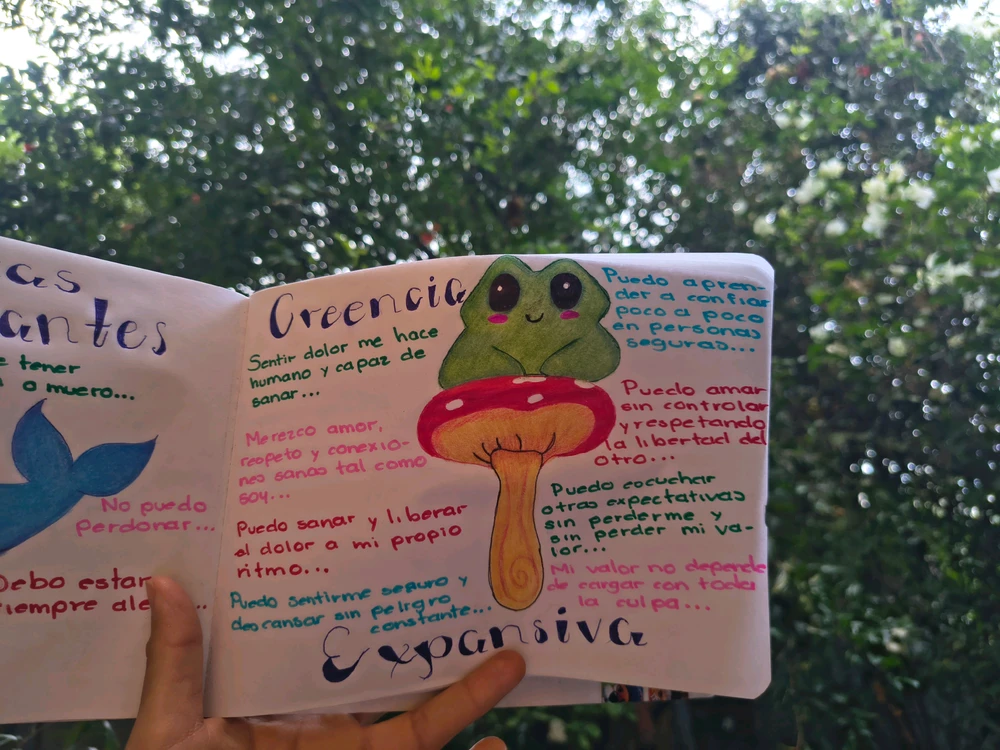 as
antes
e tener
o muero...
No puedo
perdonar...
Debo estar
siempre ale
Creencia
Sentir dolor me hace
humano y capaz de
sanar...
Merezco amor,
respeto y conexio-
nes sanas tal como
soy...
Puedo sanar y liberar
el dolor a mi propio
ritmo...
Puedo sentirme seguro y
descansar sin peligro
constante...
Puedo apren-
der a confiar
poco a poco
en personas
seguras...
Puedo amar
sin controlar
y respetando
la libertad del
otro...
Puedo escuchar
otras expectativas
sin perderme y
sin perder mi va-
lor...
Mi valor no depende
de cargar con toda
la culpa...
Expansiva